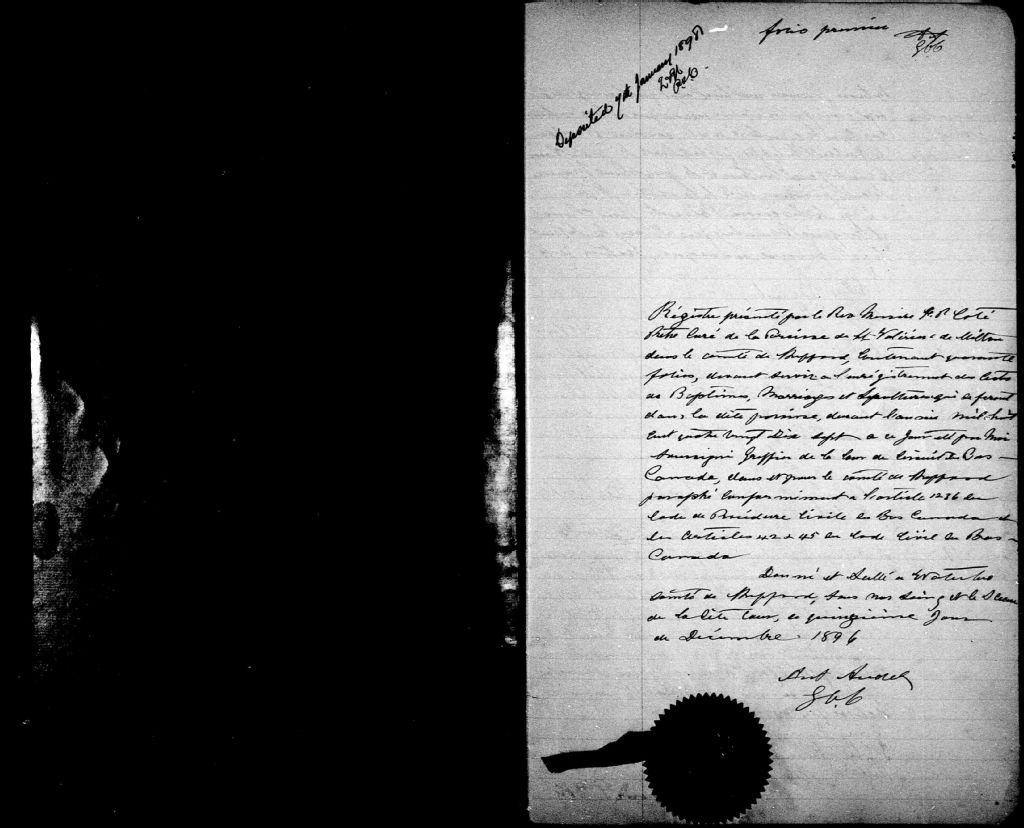 folio premier
Deposited 7th January 1898
G.C.C.
Régistre présenté par le Rev Messire Côté
Prêtre Curé de la Paroisse de St Valérien de Milton
dans le comté de Shefford, Contenant quarante
folios, devant servir a l'enrégistrement des Actes
de Baptêmes, Marriages et Sépultures qui se feront
dans la dite paroisse, durant l'année mil huit
cent quatre vingt dix sept a ce jour été par Moi
soussigné Greffier de la Cour de Circuit Bas-
Canada, dans et pour le comté de Shefford
paraphé Conformément a l'article 1236 du
Code de Procédure Civile du Bas Canada et
les articles 42 & 45 du Code Civil du Bas-
Canada
Donné et Scellé a Waterloo
comté de Shefford, sous nos Seing et le Sceau
de la dite Cour, ce quinzième Jour
de Décembre 1896
Ant Audet
G.C.C.